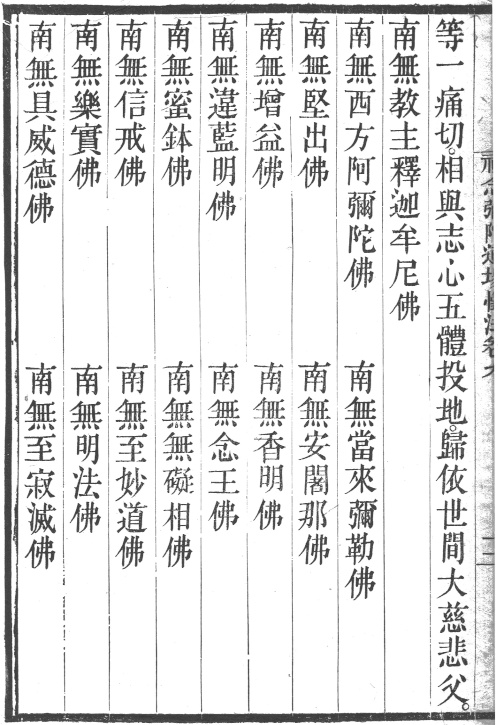 等一痛切。相與志心五體投地。歸依世間大慈悲父。
南無教主釋迦牟尼佛
南無西方阿彌陀佛 南無當來彌勒佛
南無堅出佛 南無安闍那佛
南無增益佛 南無香明佛
南無違藍明佛 南無念王佛
南無蜜鉢佛 南無無礙相佛
南無信戒佛 南無至妙道佛
南無樂實佛 南無明法佛
南無具威德佛 南無至寂滅佛